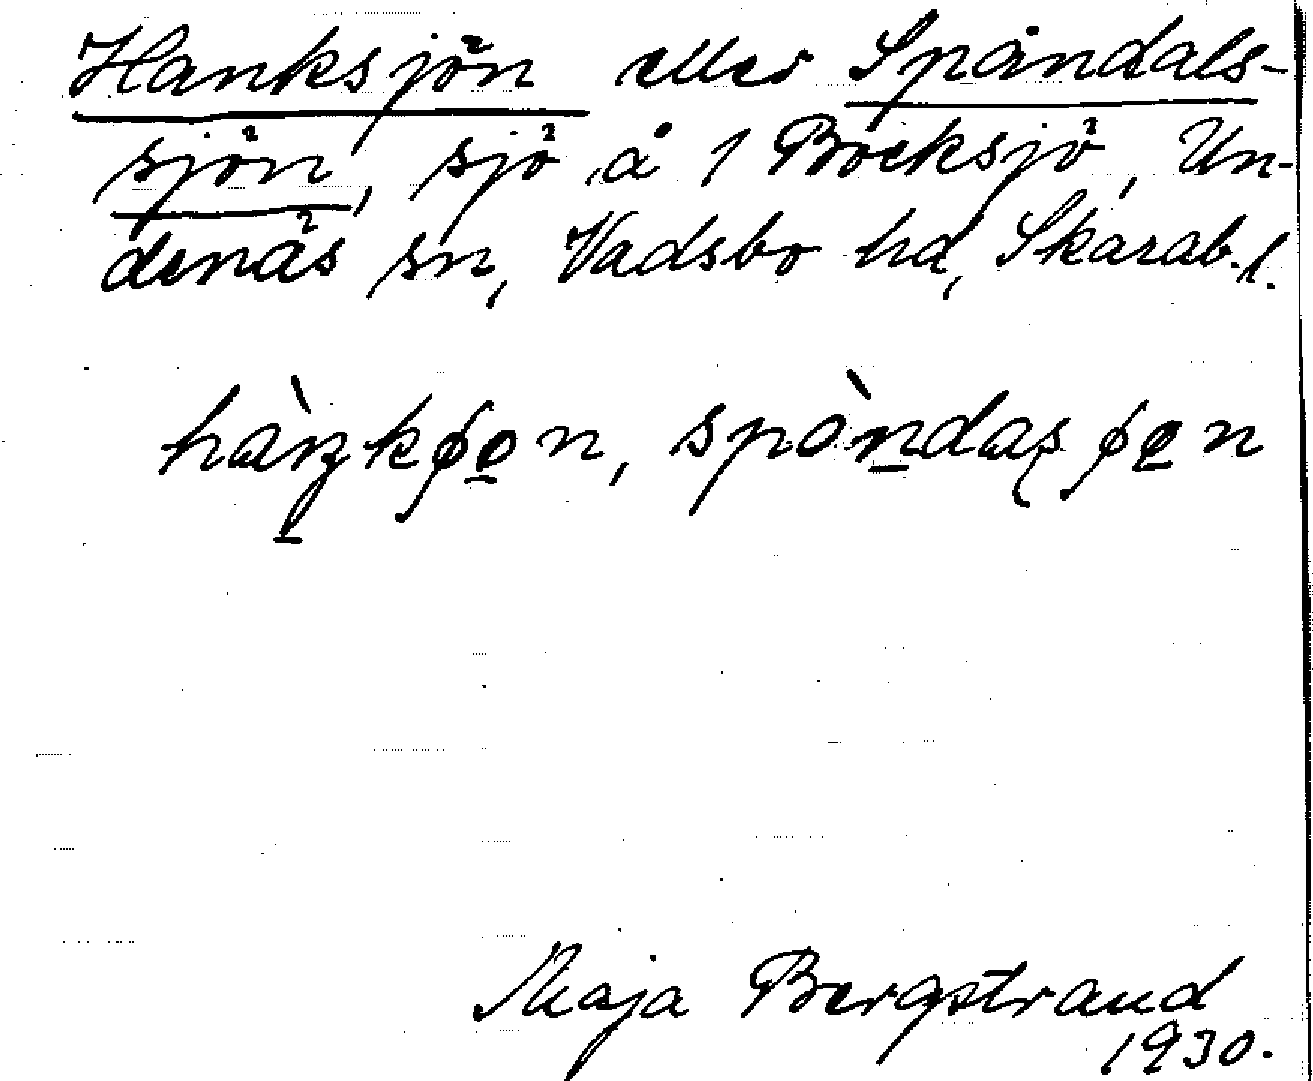 Hanksjön eller Spåndals-
sjön, sjö å 1 Bocksjö, Un-
denäs sn, Vadsbo hd, Skarab. l.
Maja Bergstrand
1930.